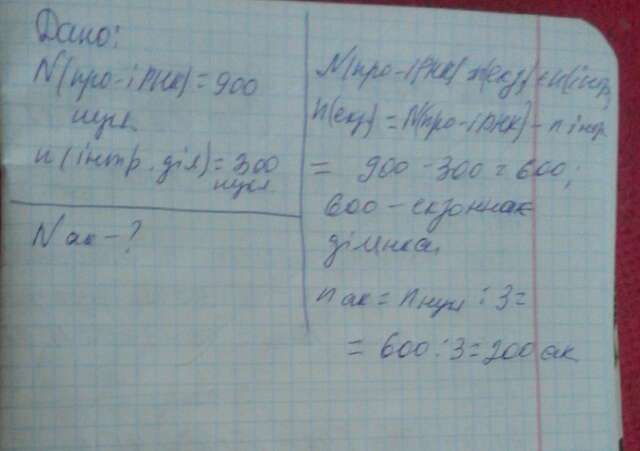 Дано:
N(про-іРНК)=900
нукл.
n(інтр. діл)=300
нукл
Nак-?
N(про-іРНК)=n(екз)+n(інтр)
n(екз)=N(про-іРНК)-n інтр
= 900-300=600;
600-екзоннак
ділянка.
nак=nнукл:3=
=600:3=200ак